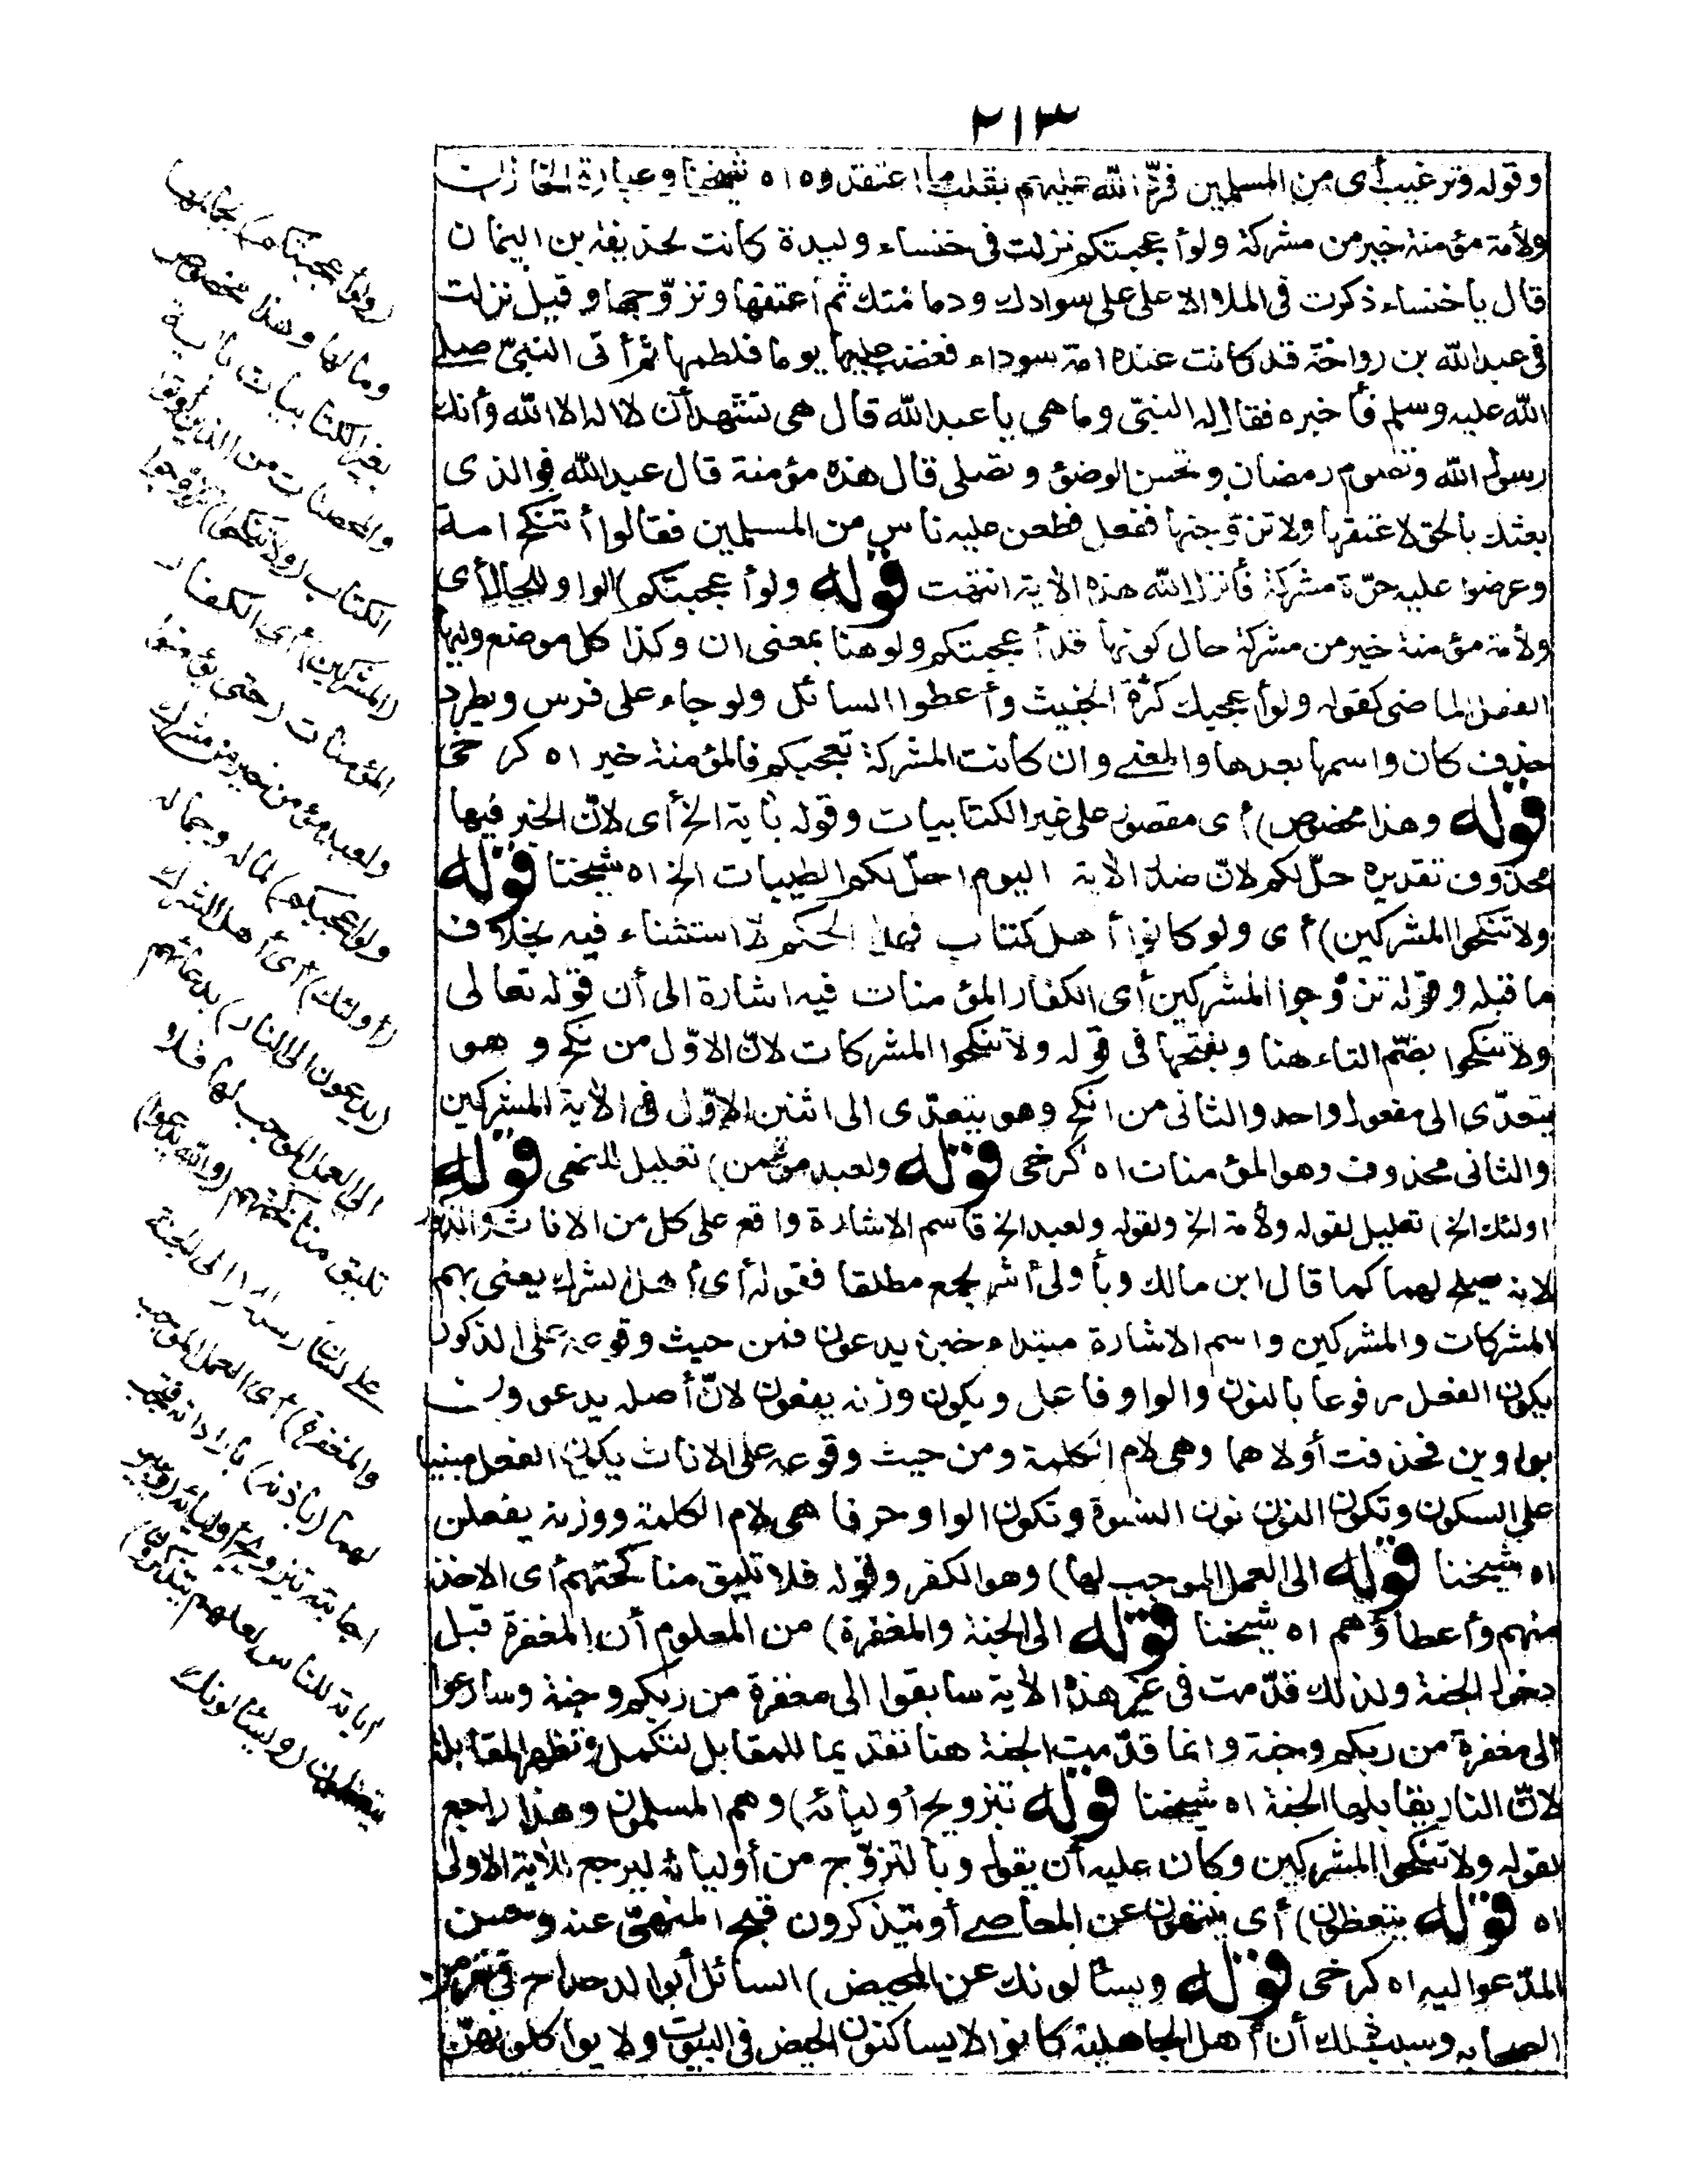 ٢١٣
وقوله وترغيب أى من المسلمين فردّ الله عليهم بقلب ما اعتقدوه اه شيخنا وعبارة الخازن
ولأمة مؤمنة خير من مشركة ولو أعجبتكم نزلت فى خنساء وليدة كانت لحذيفة بن اليمان
قال يا خنساء ذكرت فى الملا الاعلى على سوادك ودمامتك ثم أعتقها وتزوّجها وقيل نزلت
فى عبد الله بن رواحة قد كانت عنده امة سوداء فغضب عليها يوما فلطمها ثم أتى النبىّ صلى
الله عليه وسلم فأخبره فقال له النبىّ وما هى يا عبد الله قال هى تشهد أن لا اله الا الله وأنك
رسول الله وتصوم رمضان وتحسن الوضوء وتصلى قال هذه مؤمنة قال عبد الله فوالذى
بعثك بالحق لاعتقنها ولاتزوّجنها ففعل فطعن عليه ناس من المسلمين فقالوا أتنكح امة
وعرضوا عليه حرّة مشركة فأنزل الله هذه الاية انتهت قوله ولو أعجبتكم) الواو للحال أى
ولأمة مؤمنة خير من مشركة حال كونها قد أعجبتكم ولو هنا بمعنى ان وكذا كل موضع وليها
الفعل الماضى كقوله ولو أعجبك كثرة الخبيث وأعطوا السائل ولو جاء على فرس ويطرد
حذف كان واسمها بعدها والمعنى وان كانت المشركة تعجبكم فالمؤمنة خير اه كرخى
قوله وهذا مخصوص) أى مقصور على غير الكتابيات وقوله بأية الخ أى لانّ الخبر فيها
محذوف تقديره حلّ لكم لانّ صدر الاية اليوم احلّ لكم الطيبات الخ اه شيخنا قوله
ولا تنكحوا المشركين) أى ولو كانوا أهل كتاب فهذا الحكم لا استثناء فيه بخلاف
ما قبله وقوله تزوّجوا المشركين أى الكفار المؤمنات فيه اشارة الى أن قوله تعالى
ولا تنكحوا بضمّ التاء هنا وبفتحها فى قوله ولا تنكحوا المشركات لانّ الاوّل من نكح وهو
يتعدّى الى مفعول واحد والثانى من انكح وهو يتعدّى الى اثنين الاوّل فى الاية المشركين
والثانى محذوف وهو المؤمنات اه كرخى قوله ولعبد مؤمن) تعليل للنهى قوله
اولئك الخ) تعليل لقوله ولأمة الخ ولقوله ولعبد الخ فاسم الاشارة واقع على كل من الاناث والذكور
لانه يصلح لهما كما قال ابن مالك وبأولى أشر لجمع مطلقا فقوله أى أهل الشرك يعنى بهم
المشركات والمشركين واسم الاشارة مبتداء خبره يدعون فمن حيث وقوعه على الذكور
يكون الفعل مرفوعا بالنون والواو فاعل ويكون وزنه يفعون لانّ أصله يدعوون
بواوين فحذفت أولاهما وهى لام الكلمة ومن حيث وقوعه على الاناث يكون الفعل مبنيا
على السكون وتكون النون نون النسوة وتكون الواو حرفا هى لام الكلمة ووزنه يفعلن
اه شيخنا قوله الى العمل الموجب لها) وهو الكفر وقوله فلا تليق مناكحتهم أى الاخذ
منهم وأعطاؤهم اه شيخنا قوله الى الجنة والمغفرة) من المعلوم أن المغفرة قبل
دخول الجنة ولذلك قدّمت فى غير هذه الاية سابقوا الى مغفرة من ربكم وجنة وسارعوا
الى مغفرة من ربكم وجنة وانما قدّمت الجنة هنا تقديما للمقابل لتكمل وتظهر المقابلة
لانّ النار يقابلها الجنة اه شيخنا قوله تتزويج أوليائه) وهم المسلمون وهذا راجع
لقوله ولا تنكحوا المشركين وكان عليه أن يقول وبالتزوّج من أوليائه ليرجع للأية الاولى
اه قوله يتعظون) أى ينتهون عن المعاصى أو يتذكرون قبح المنهىّ عنه وحسن
المدّعو اليه اه كرخى قوله ويسألونك عن المحيض) السائل أبو الدحداح فى نفر من
الصحابة وسبب ذلك أن أهل الجاهلية كانوا لا يساكنون الحيض فى البيت ولا يواكلونهنّ
(ولو أعجبتكم) لجمالها
ومالها وهذا مخصوص
بغير الكتابيات بأية
والمحصنات من الذين أوتوا
الكتاب (ولا تنكحوا) تزوّجوا
(المشركين) أى الكفار
المؤمنات (حتى يؤمنوا
ولعبد مؤمن خير من مشرك
ولو أعجبكم) لماله وجماله
(أولئك) أى أهل الشرك
(يدعون الى النار) بدعائهم
الى العمل الموجب لها فلا
تليق مناكحتهم (والله يدعوا)
على لسان رسله (الى الجنة
والمغفرة) أى العمل الموجب
لهما (باذنه) بارادته فتجب
اجابته بتزويج أوليائه (ويبين
آياته للناس لعلهم يتذكرون)
يتعظون (ويسألونك